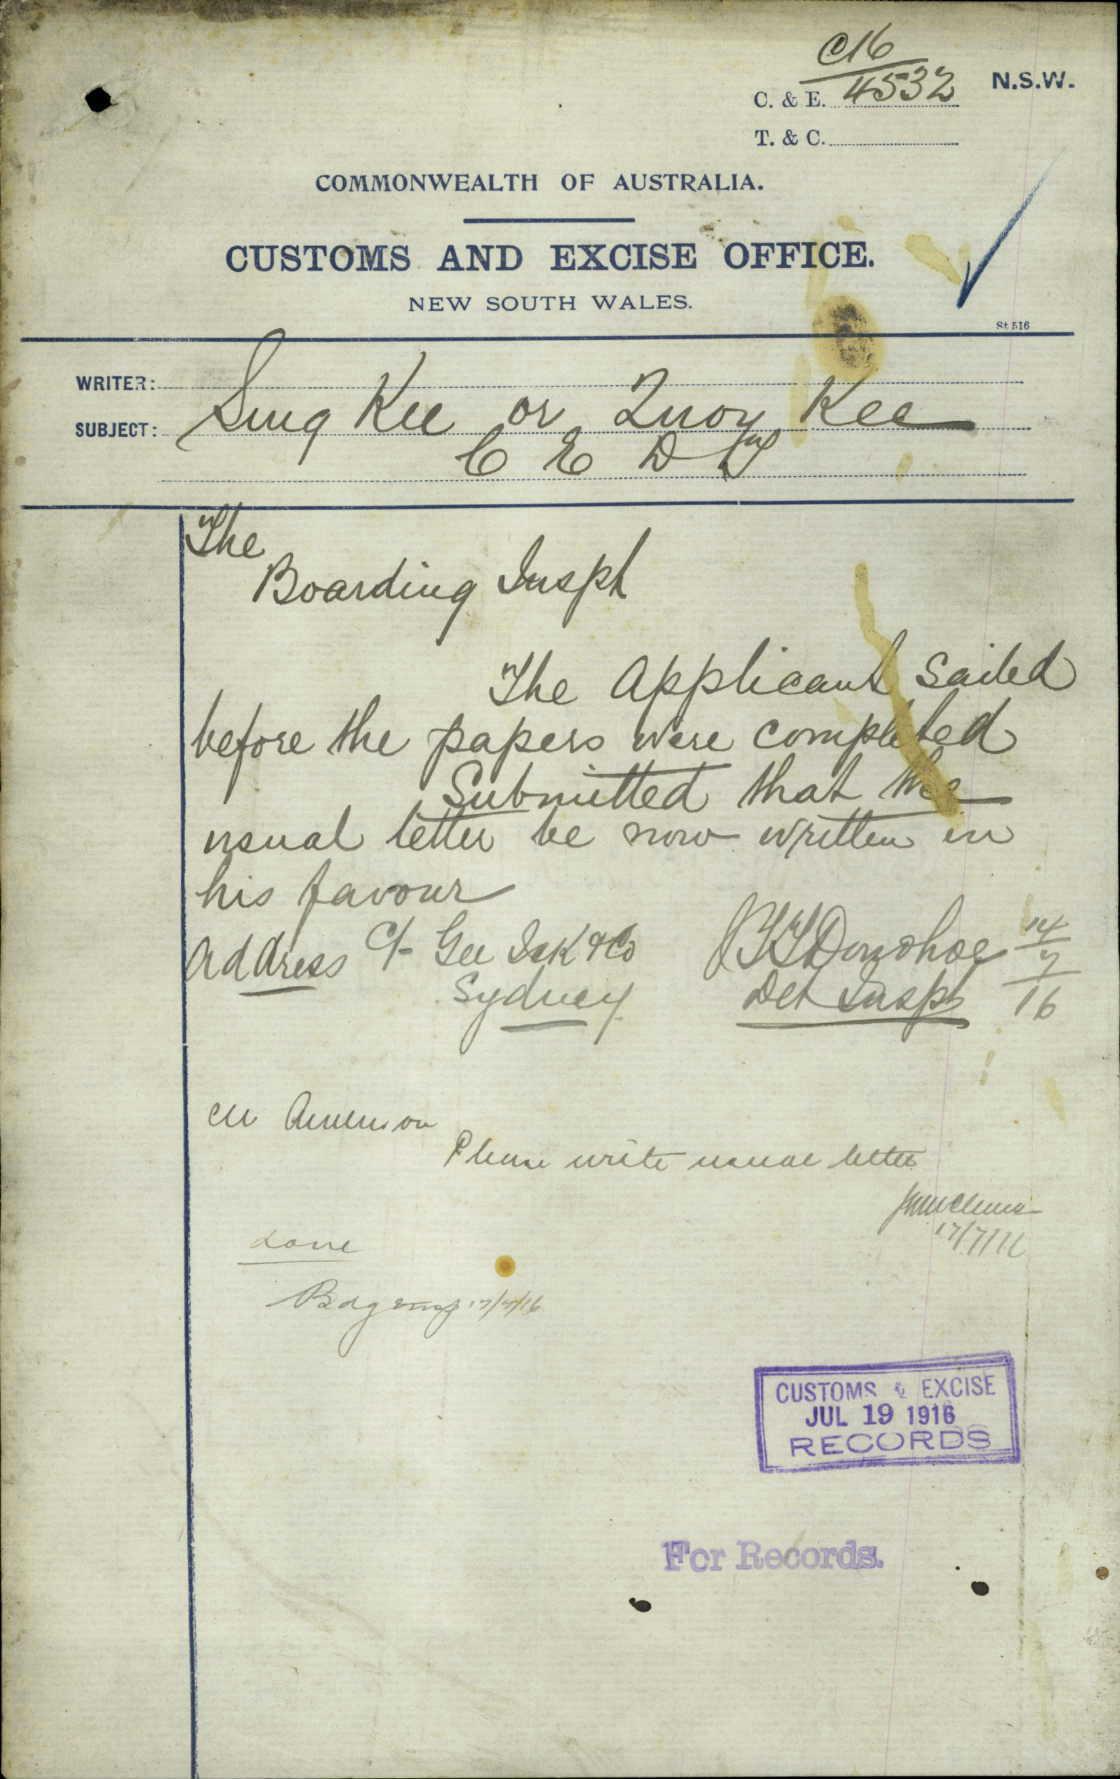 C16
C. & E. 4532 N.S.W.
T. & C.
COMMONWEALTH OF AUSTRALIA.
CUSTOMS AND EXCISE OFFICE.
NEW SOUTH WALES.
St 516
WRITER:
SUBJECT: Sing Kee or Quoy Kee
C E D T
The
Boarding Inspt
The Applicant Sailed
before the papers were completed
Submitted that the
usual letter be now written in
his favour
Address c/- Gee Ick & Co J T T Donohoe 14/7/16
Sydney Det Inspt
Please write usual letter
17/7/16
done
17/7/16
CUSTOMS & EXCISE
JUL 19 1916
RECORDS
For Records.